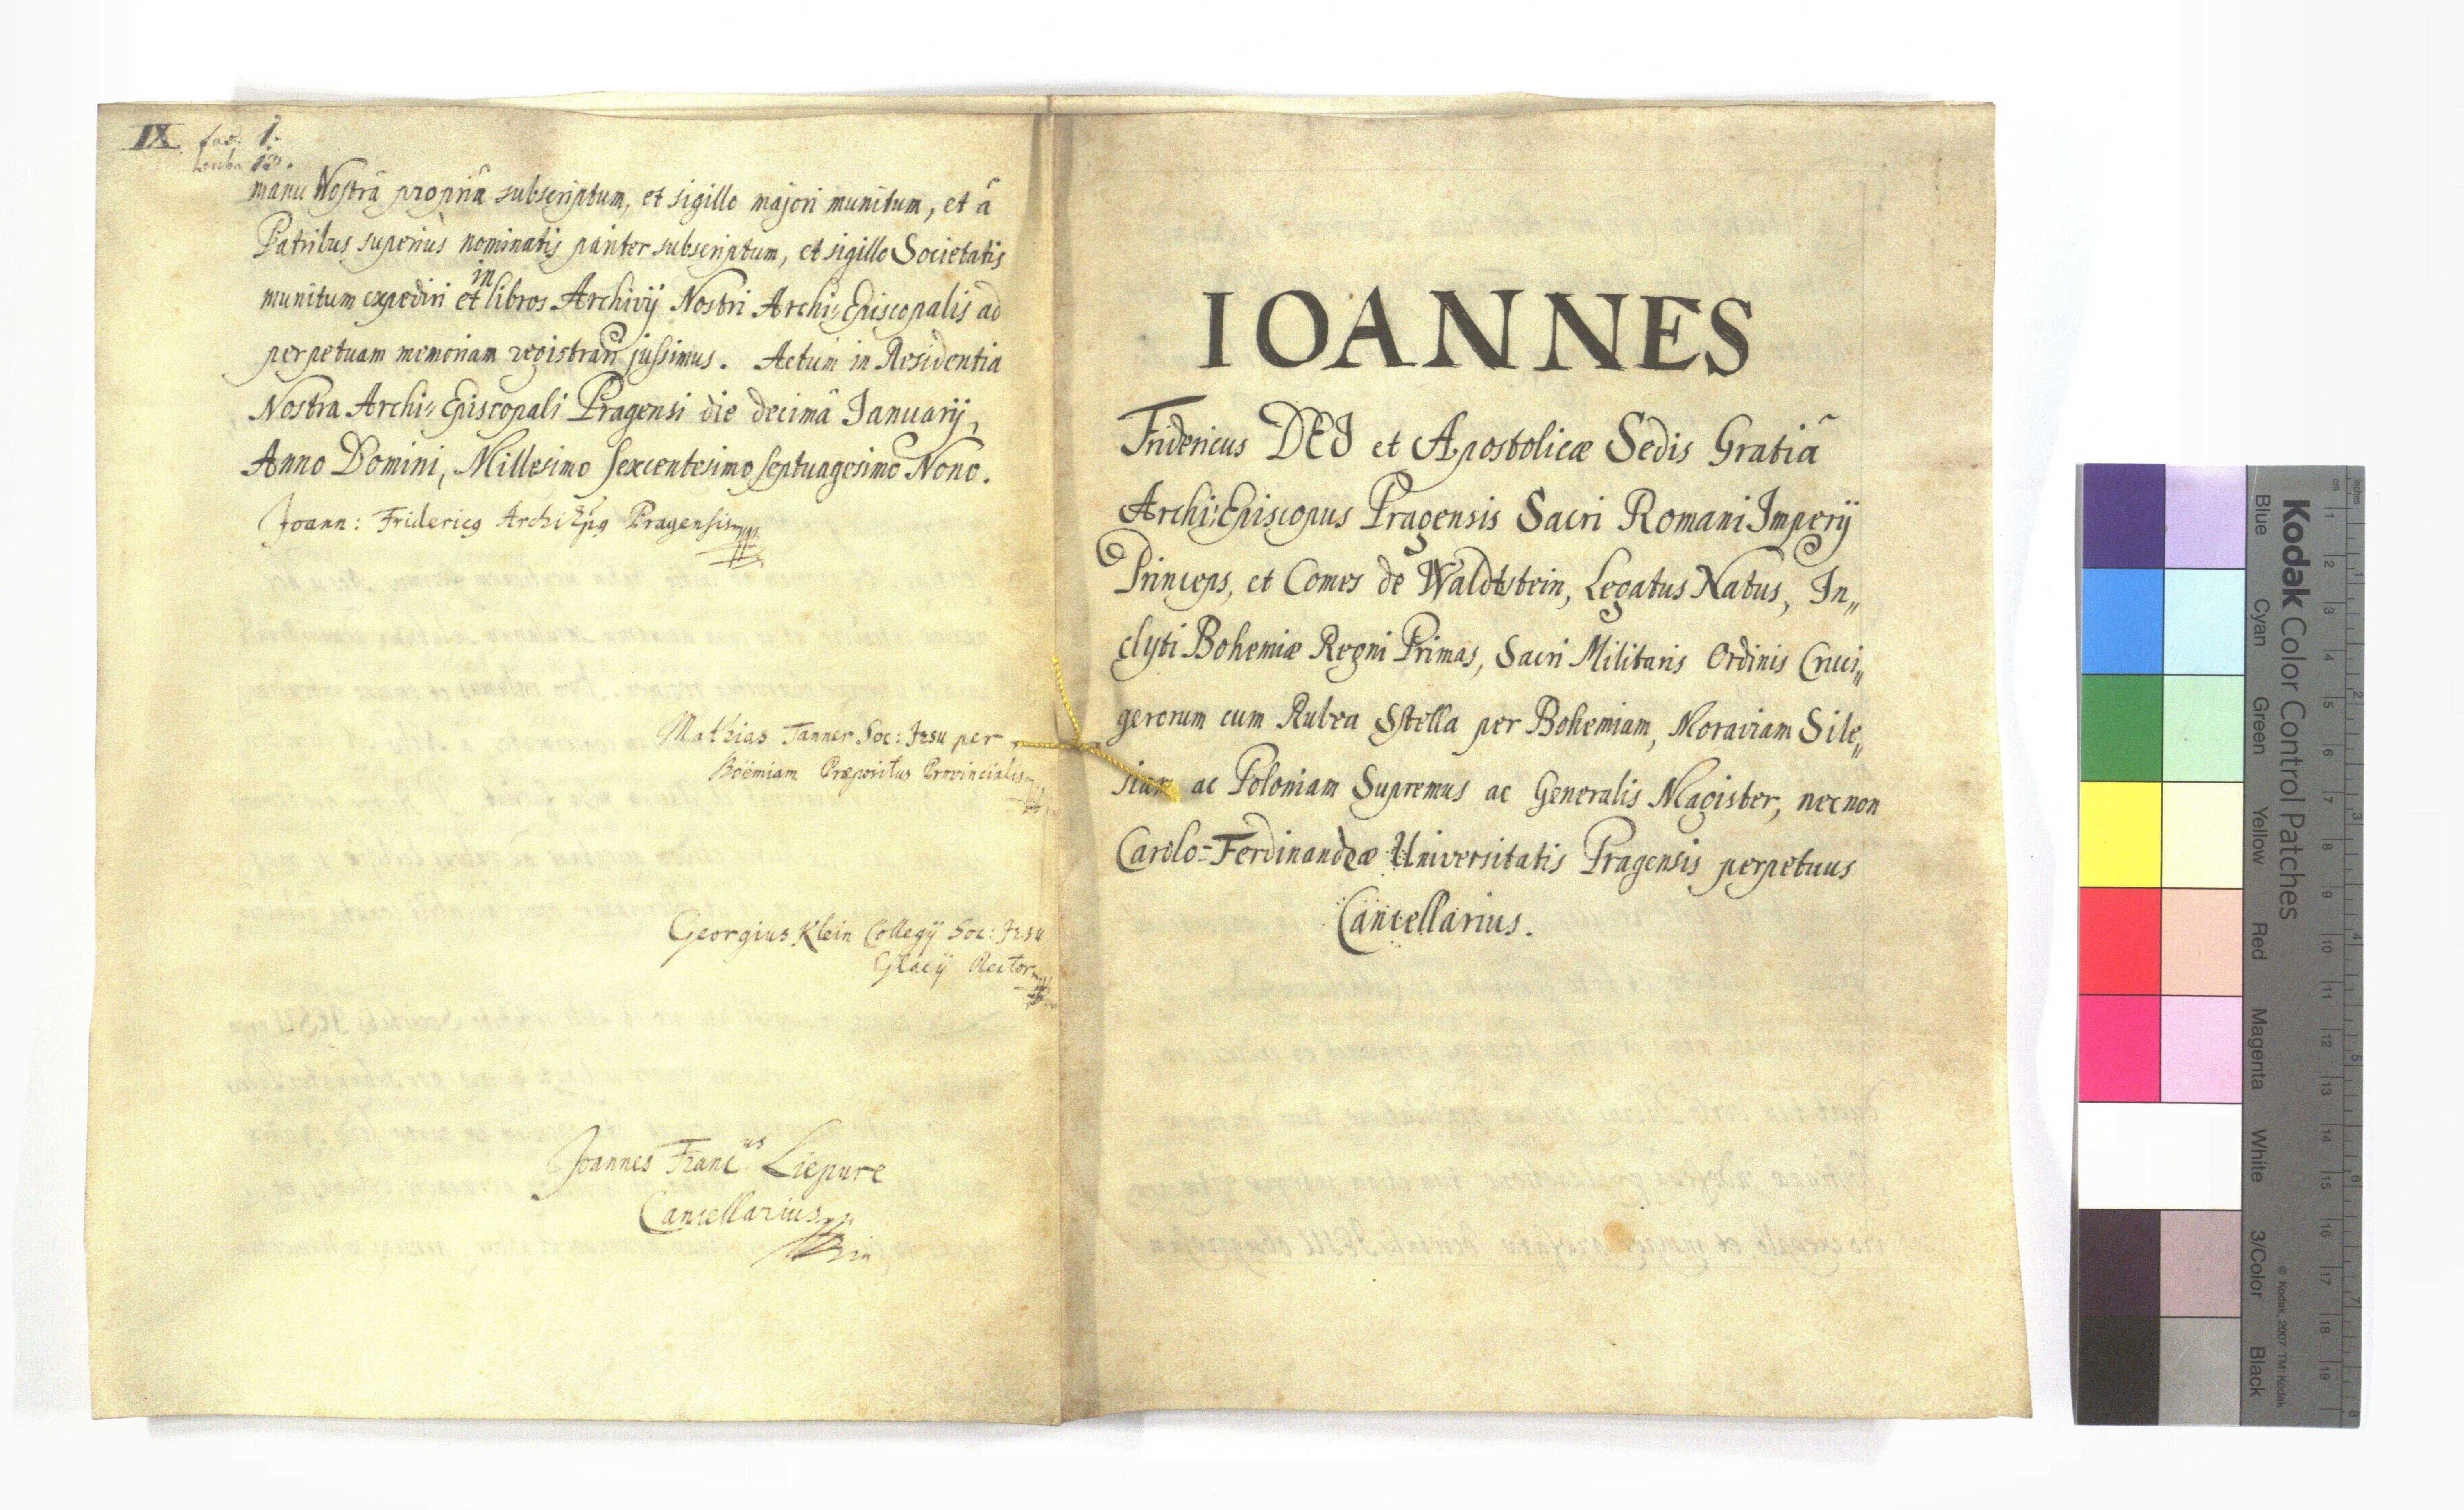 IX. fas. 1.
13.
manu Nostrâ propriâ subscriptum, et sigillo majori munitum, et â
Patribus superiùs nominatis pariter subscriptum, et sigillo Societatis
munitum expediri et in libros Archivÿ Nostri Archi-Episcopalis ad
perpetuam memoriam registrari jussimus. Actum in Residentia
Nostra Archi-Episcopali Pragensi die decimâ Ianuarÿ,
Anno Domini, Millesimo sexcentesimo septuagesimo Nono.
Joann: Fridericꝰ ArchiEpꝰ Pragensis
Mathias Tanner Soc: Jesu per
Boëmiam Præpositus Provincialis
Georgius Klein Collegÿ Soc: Jesu
Glacÿ Rector
Joannes Franc.us Liepure
Cancellarius
IOANNES
Fridericus DEI et Apostolicæ Sedis Gratiâ
Archi-Episcopus Pragensis Sacri Romani Imperÿ
Princeps, et Comes de Waldtstein, Legatus Natus, In„
clyti Bohemiæ Regni Primas, Sacri Militaris Ordinis Cruci„
gerorum cum Rubea Stella per Bohemiam, Moraviam Sile„
siam ac Poloniam Supremus ac Generalis Magister, nec non
Carolo-Ferdinandeæ Universitatis Pragensis perpetuus
Cancellarius.
Kodak Color Control Patches
Blue Cyan Green Yellow Red Magenta White 3/Color Black
© Kodak, 2007 TM: Kodak
inches 1 2 3 4 5 6 7 8
cm 1 2 3 4 5 6 7 8 9 10 11 12 13 14 15 16 17 18 19